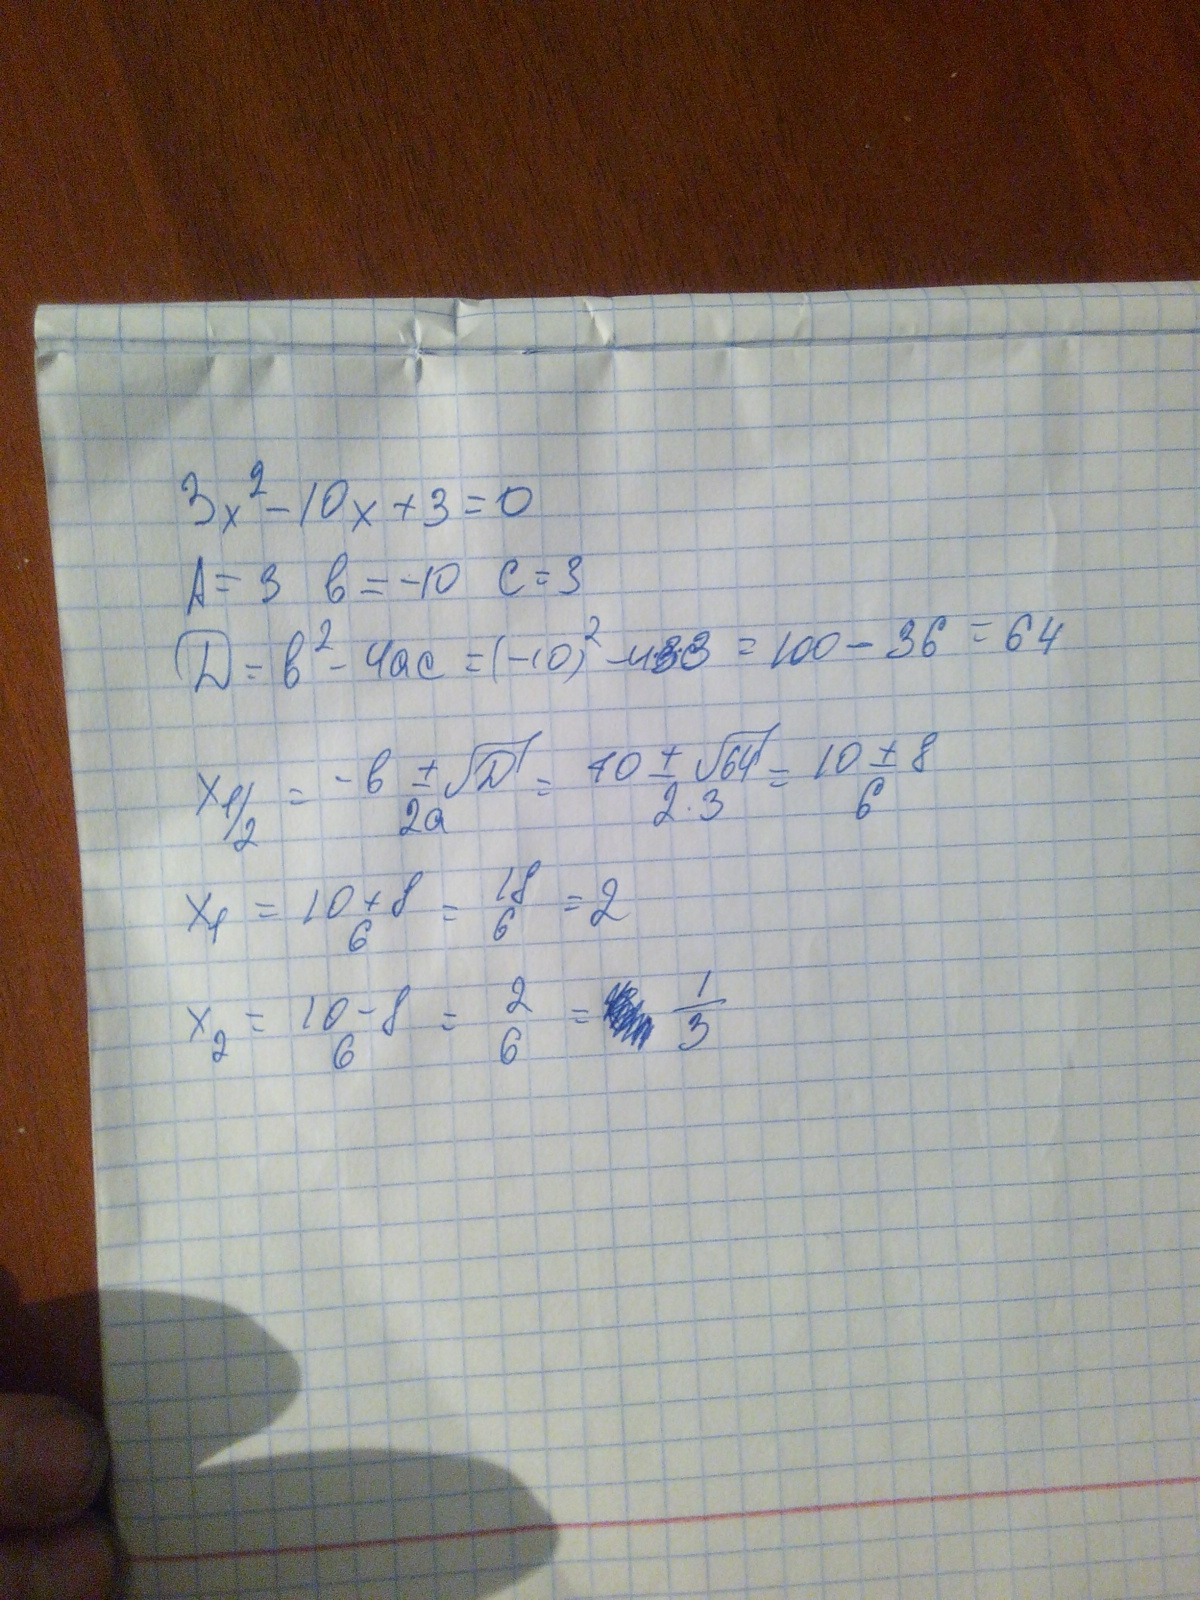 3x² - 10x + 3 = 0
A = 3 в = -10 C = 3
D = в² - 4ac = (-10)² - 4·3·3 = 100 - 36 = 64
x₁/₂ = (-в ± √D)/2a = (10 ± √64)/(2·3) = (10 ± 8)/6
x₁ = (10 + 8)/6 = 18/6 = 2
x₂ = (10 - 8)/6 = 2/6 = 1/3